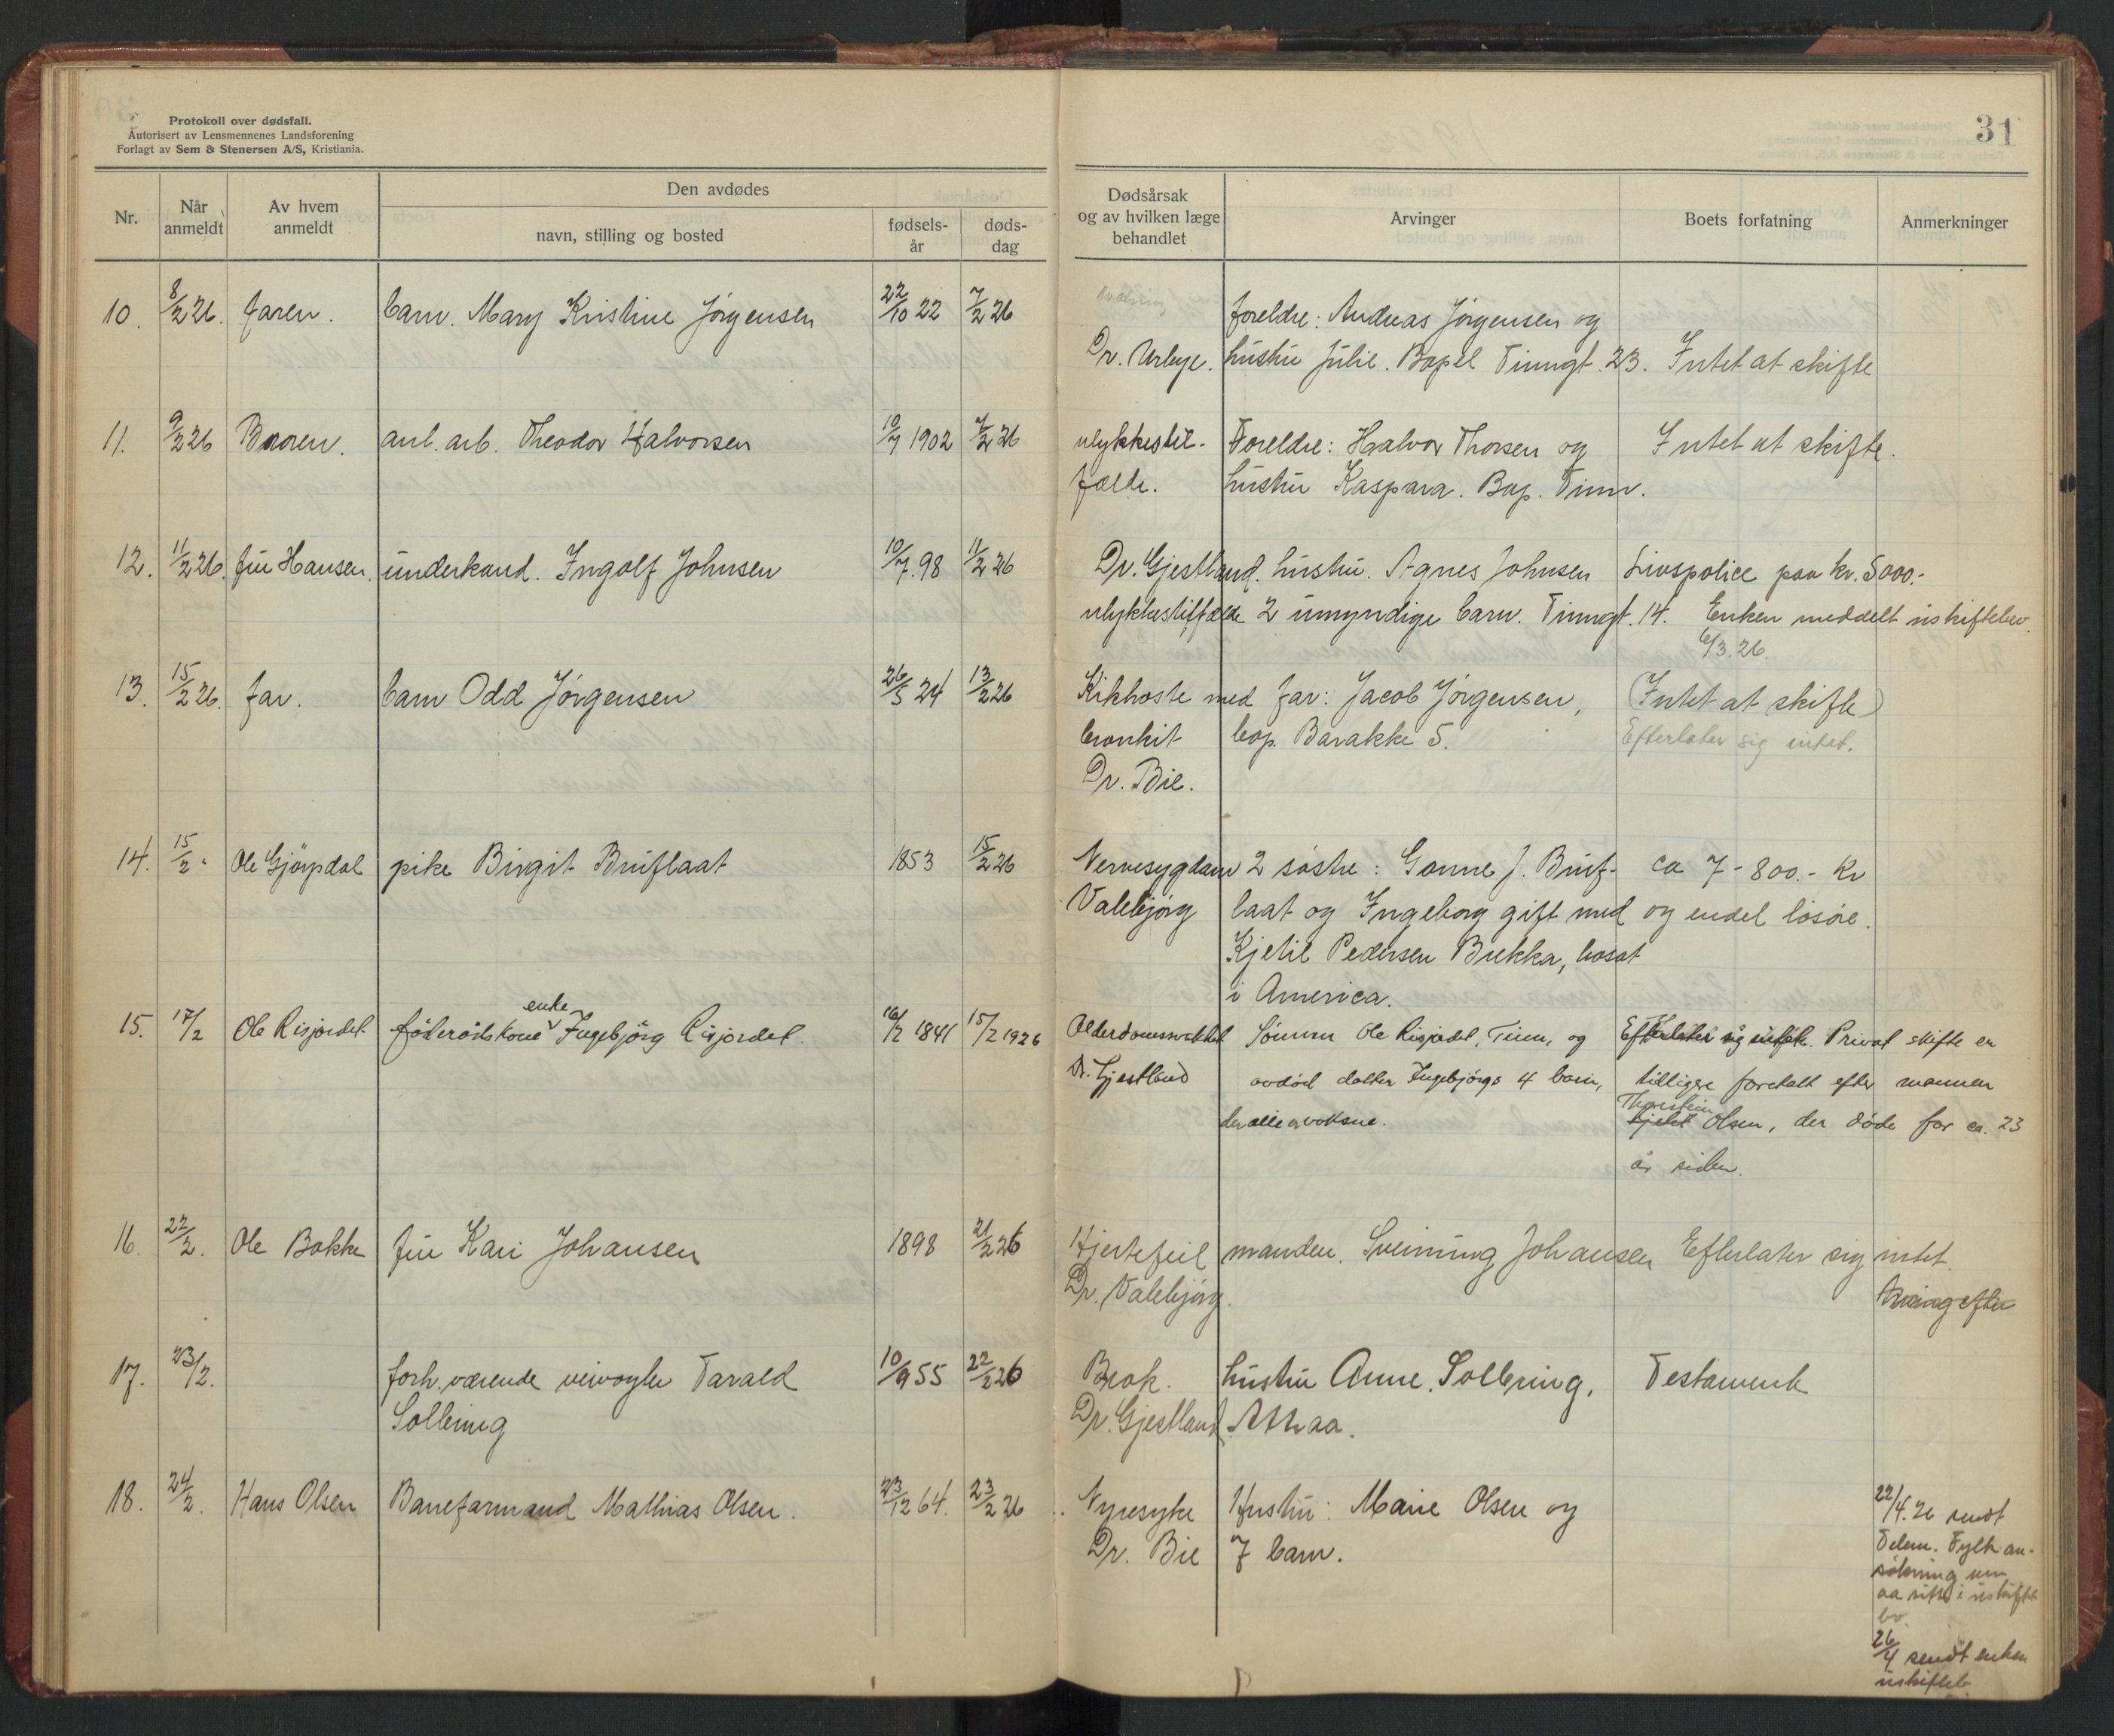 Protokoll over dødsfall.
Autorisert av Lensmennenes Landsforening
Forlagt av Sem & Stenersen A/S, Kristiania.
31
Nr.
Når anmeldt
Av hvem anmeldt
Den avdødes
navn, stilling og bosted
fødsels-år
døds-dag
Dødsårsak og av hvilken læge behandlet
Arvinger
Boets forfatning
Anmerkninger
10. 8/2 26. faren. barn. Mary Kristine Jørgensen 22/10 22 7/2 26 foreldre: Andreas Jørgensen og
Dr. Urbye. hustru Julie. Bopel Tinngt. 23. Intet at skifte
11. 9/2 26 Broren. anl. arb. Theodor Halvorsen 10/7 1902 7/2 26 ulykkestil- Foreldre: Halvor Thorsen og Intet at skifte.
fælde. hustru Kaspara. Bop. Tinn.
12. 11/2 26. fru Hansen. underkand. Ingolf Johnsen 10/7. 98 11/2 26 Dr. Gjestland. hustru. Agnes Johnsen Livspolice paa kr. 5000.-
ulykkestilfælde 2 umyndige barn. Tinngt. 14. Enken meddelt uskiftebev.
6/3. 26.
13. 15/2 26. far. barn Odd Jørgensen 26/5 24 13/2 26 Kikhoste med far: Jacob Jørgensen, (Intet at skifte)
bronkit bop. Barakke 5. Efterlater sig intet.
Dr. Bie.
14. 15/2 " Ole Gjøysdal pike Birgit Bruflaat 1853 15/2 26 Nervesygdom 2 søstre: Gonne J. Bruf- ca 7-800.- kr
Valebjørg laat og Ingeborg gift med og endel løsøre.
Kjetil Pedersen Brekka, bosat
i America.
15. 17/2 Ole Risjordet føderådskone enke Ingebjørg Risjordet. 16/2 1841 15/2 1926 Alderdomssvakhet Sønnen Ole Risjordet, Tinn, og Efterlater sig intet. Privat skifte er
Dr. Gjestland avdød datter Ingebjørgs 4 barn, tidligere foretatt efter mannen
der alle er voksne. Thorstein Kjetil Olsen, der døde for ca. 23
år siden.
16. 22/2. Ole Bakke fru Kari Johansen 1898 21/2 26 Hjertefeil manden. Sveinung Johansen Efterlater sig intet.
Dr. Valebjørg. Arving efter
17. 23/2. forh. værende veivogter Tarald 10/9 55 22/2 26 Brok. hustru Anne Solbring, Testament
Solbring Dr. Gjestland Atraa.
18. 24/2. Hans Olsen Baneformand Mathias Olsen. 23/12 64. 23/2 26 Nyresyke Hustru: Marie Olsen og 22/4. 26 sendt
Dr. Bie 7 barn. Telem. Fylk an-
søkning om
aa sitte i uskiftet
bo.
26/4 sendt enken
uskifteb.